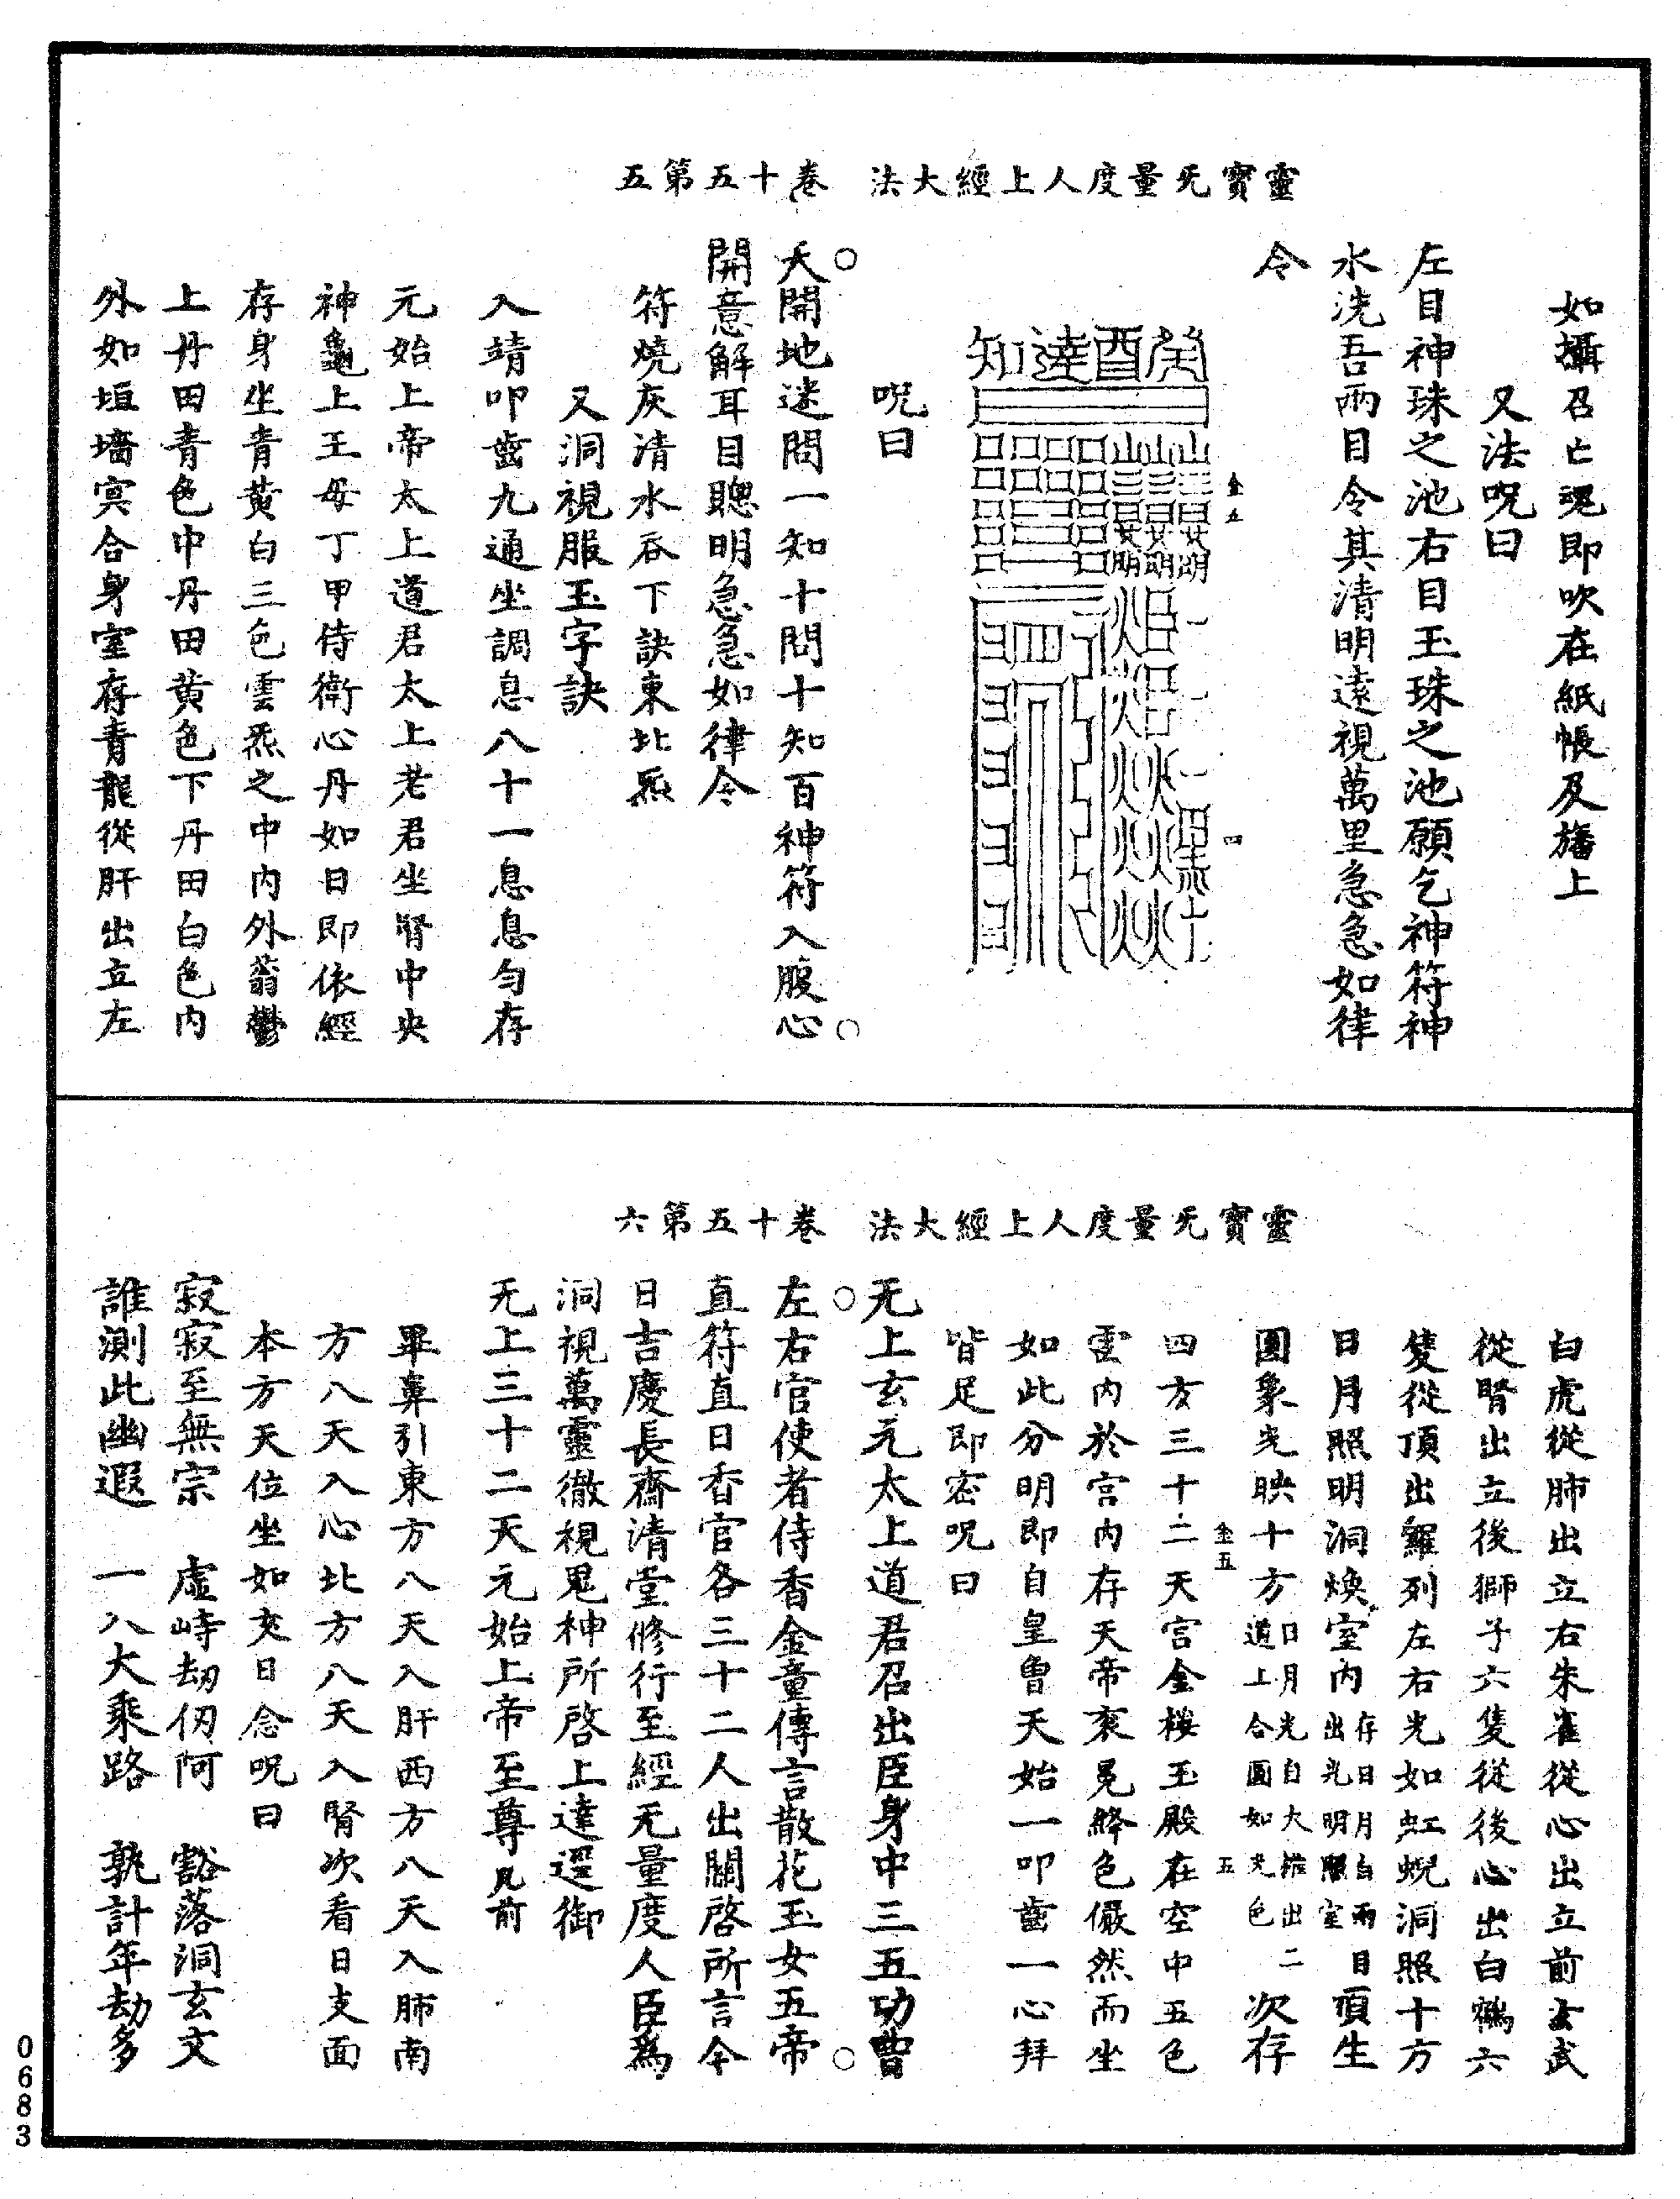 靈寶无量度人上經大法　卷十五第五
如攝召亡魂即吹在紙帳及旛上
又法呪曰
左目神珠之池右目玉珠之池願乞神符神
水洗吾兩目令其清明遠視萬里急急如律
令
金五　四
呪曰
天開地迷問一知十問十知百神符入腹心
開意解耳目聰明急急如律令
符燒灰清水吞下訣東北炁
又洞視服玉字訣
入靖叩齒九通坐調息八十一息息勻存
元始上帝太上道君太上老君坐腎中央
神龜上王母丁甲侍衛心丹如日即依經
存身坐青黃白三色雲炁之中內外蓊鬱
上丹田青色中丹田黃色下丹田白色內
外如垣墻冥合身室存青龍從肝出立左
靈寶无量度人上經大法　卷十五第六
白虎從肺出立右朱雀從心出立前玄武
從腎出立後獅子六隻從後心出白鶴六
隻從頂出羅列左右光如虹蜺洞照十方
日月照明洞煥室內存日月自兩目出光明照室項生
圓象光映十方日月光自大椎出二道上合圓如光色次存
金五　五
四方三十二天宮金樓玉殿在空中五色
雲內於宮內存天帝衮冕絳色儼然而坐
如此分明即自皇曾天始一叩齒一心拜
皆足即密呪曰
无上玄元太上道君召出臣身中三五功曹
左右官使者侍香金童傳言散花玉女五帝
直符直日香官各三十二人出關啓所言今
日吉慶長齋清堂修行至經无量度人臣爲
洞視萬靈徹視鬼神所啓上達逕御
无上三十二天元始上帝至尊几前
畢鼻引東方八天入肝西方八天入肺南
方八天入心北方八天入腎次看日支面
本方天位坐如亥日念呪曰
寂寂至無宗　虛峙劫仞阿　豁落洞玄文
誰測此幽遐　一入大乘路　孰計年劫多
0683